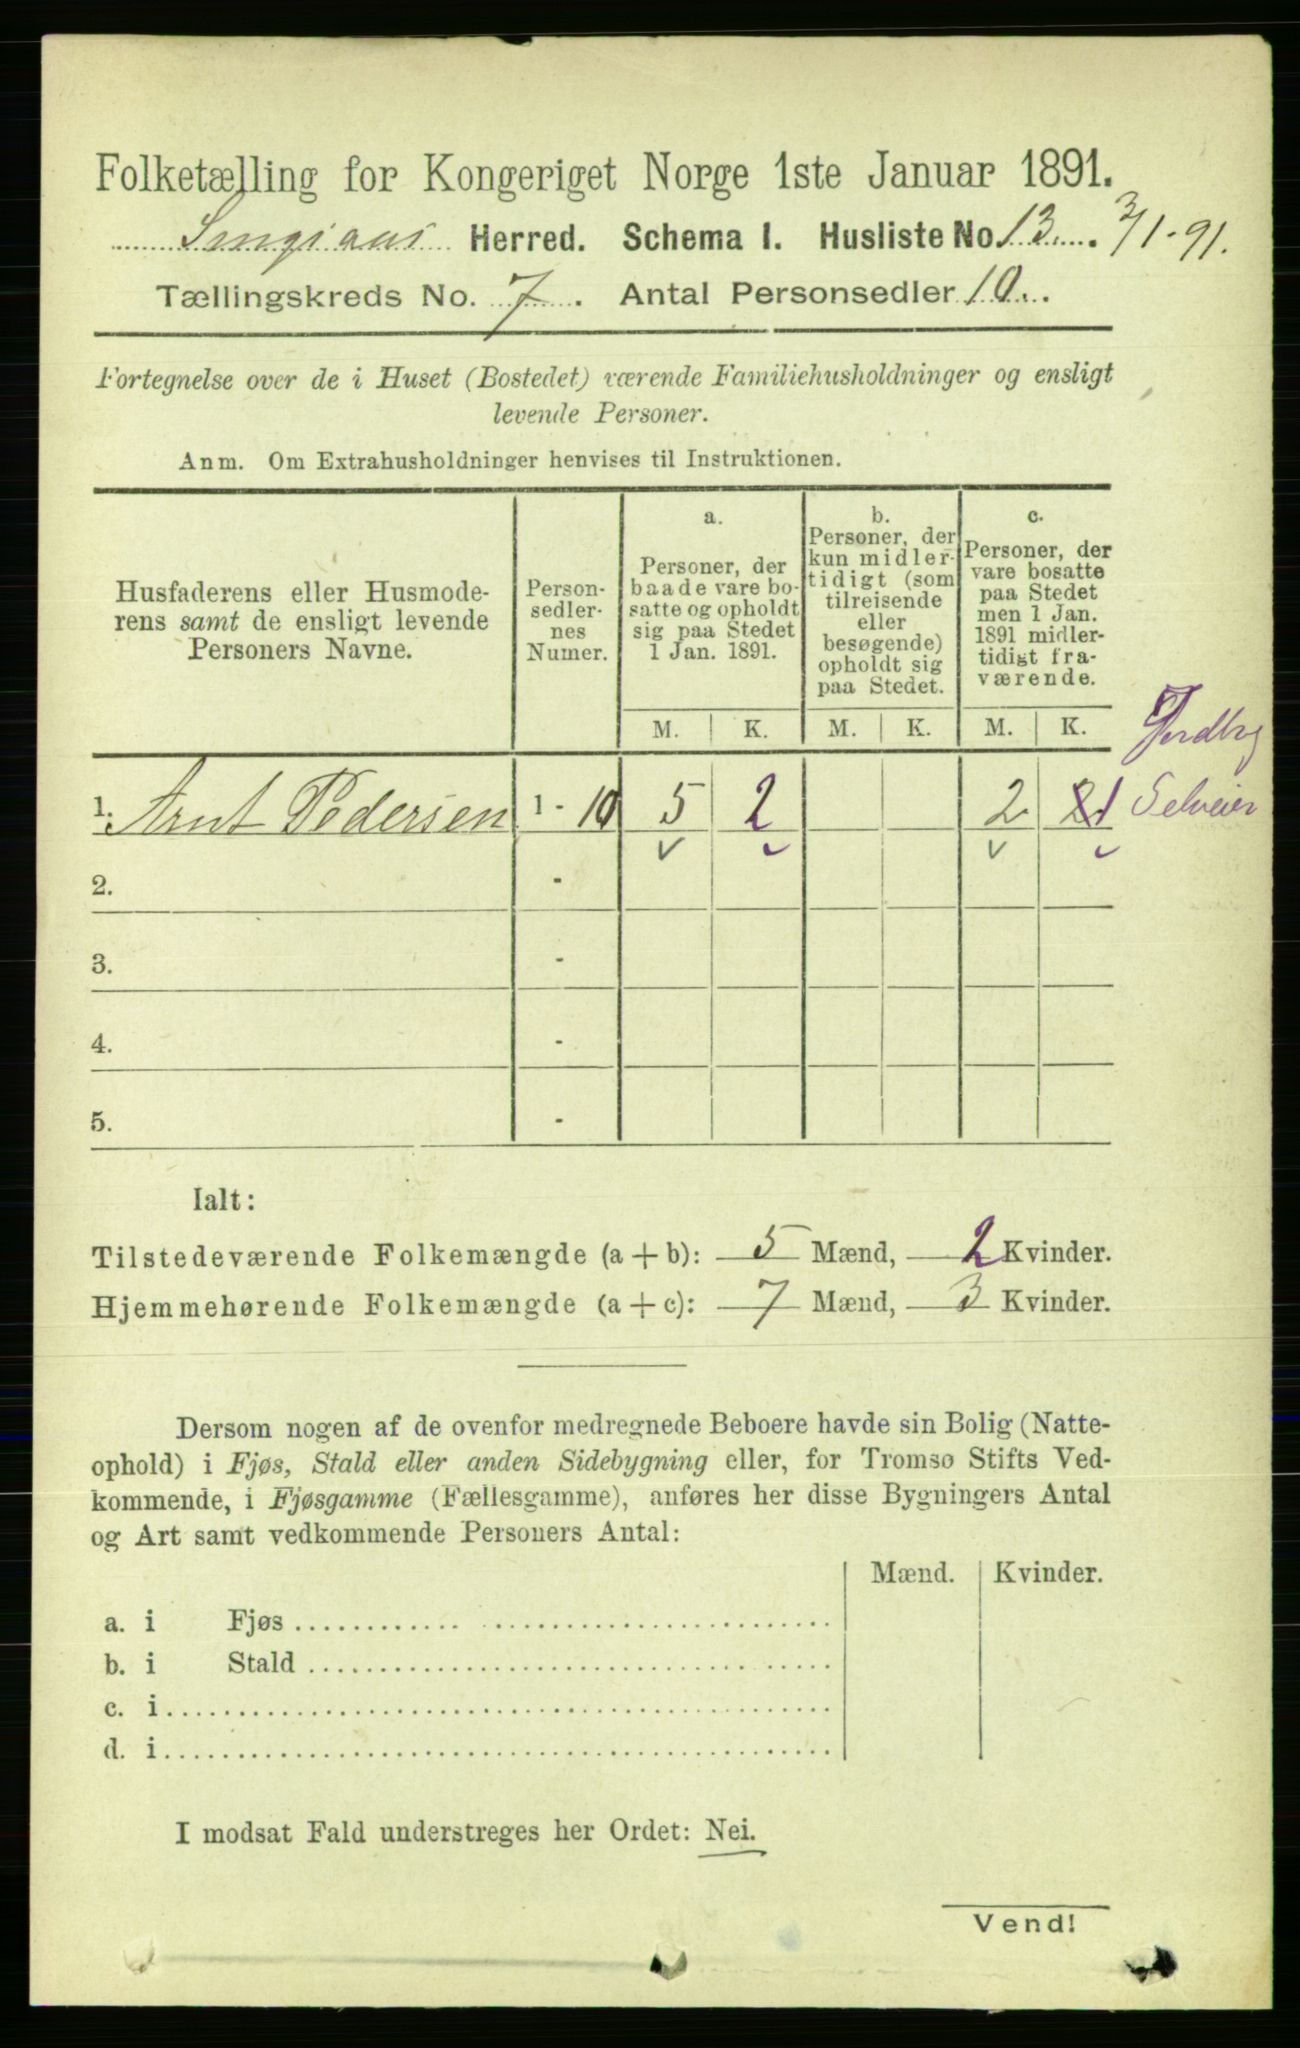 Folketælling for Kongeriget Norge 1ste Januar 1891.
Herred. Schema I. Husliste No 13. 3/1-91.
Tællingskreds No. 7. Antal Personsedler 10.
Fortegnelse over de i Huset (Bostedet) værende Familiehusholdninger og ensligt
levende Personer.
Anm. Om Extrahusholdninger henvises til Instruktionen.
Husfaderens eller Husmode-
rens samt de ensligt levende
Personers Navne.
Person-
sedler-
nes
Numer.
a.
Personer, der
baade vare bo-
satte og opholdt
sig paa Stedet
1 Jan. 1891.
b.
Personer, der
kun midler-
tidigt (som
tilreisende
eller
besøgende)
opholdt sig
paa Stedet.
c.
Personer, der
vare bosatte
paa Stedet
men 1 Jan.
1891 midler-
tidigt fra-
værende.
M. K. M. K. M. K.
Jordbrg
1. Arnt Pedersen 1 - 10 5 2 2 1 Selveier
2. -
3. -
4. -
5. -
Ialt:
Tilstedeværende Folkemængde (a + b): 5 Mænd, 2 Kvinder.
Hjemmehørende Folkemængde (a + c): 7 Mænd, 3 Kvinder.
Dersom nogen af de ovenfor medregnede Beboere havde sin Bolig (Natte-
ophold) i Fjøs, Stald eller anden Sidebygning eller, for Tromsø Stifts Ved-
kommende, i Fjøsgamme (Fællesgamme), anføres her disse Bygningers Antal
og Art samt vedkommende Personers Antal:
Mænd. Kvinder.
a. i Fjøs
b. i Stald
c. i
d. i
I modsat Fald understreges her Ordet: Nei.
Vend!